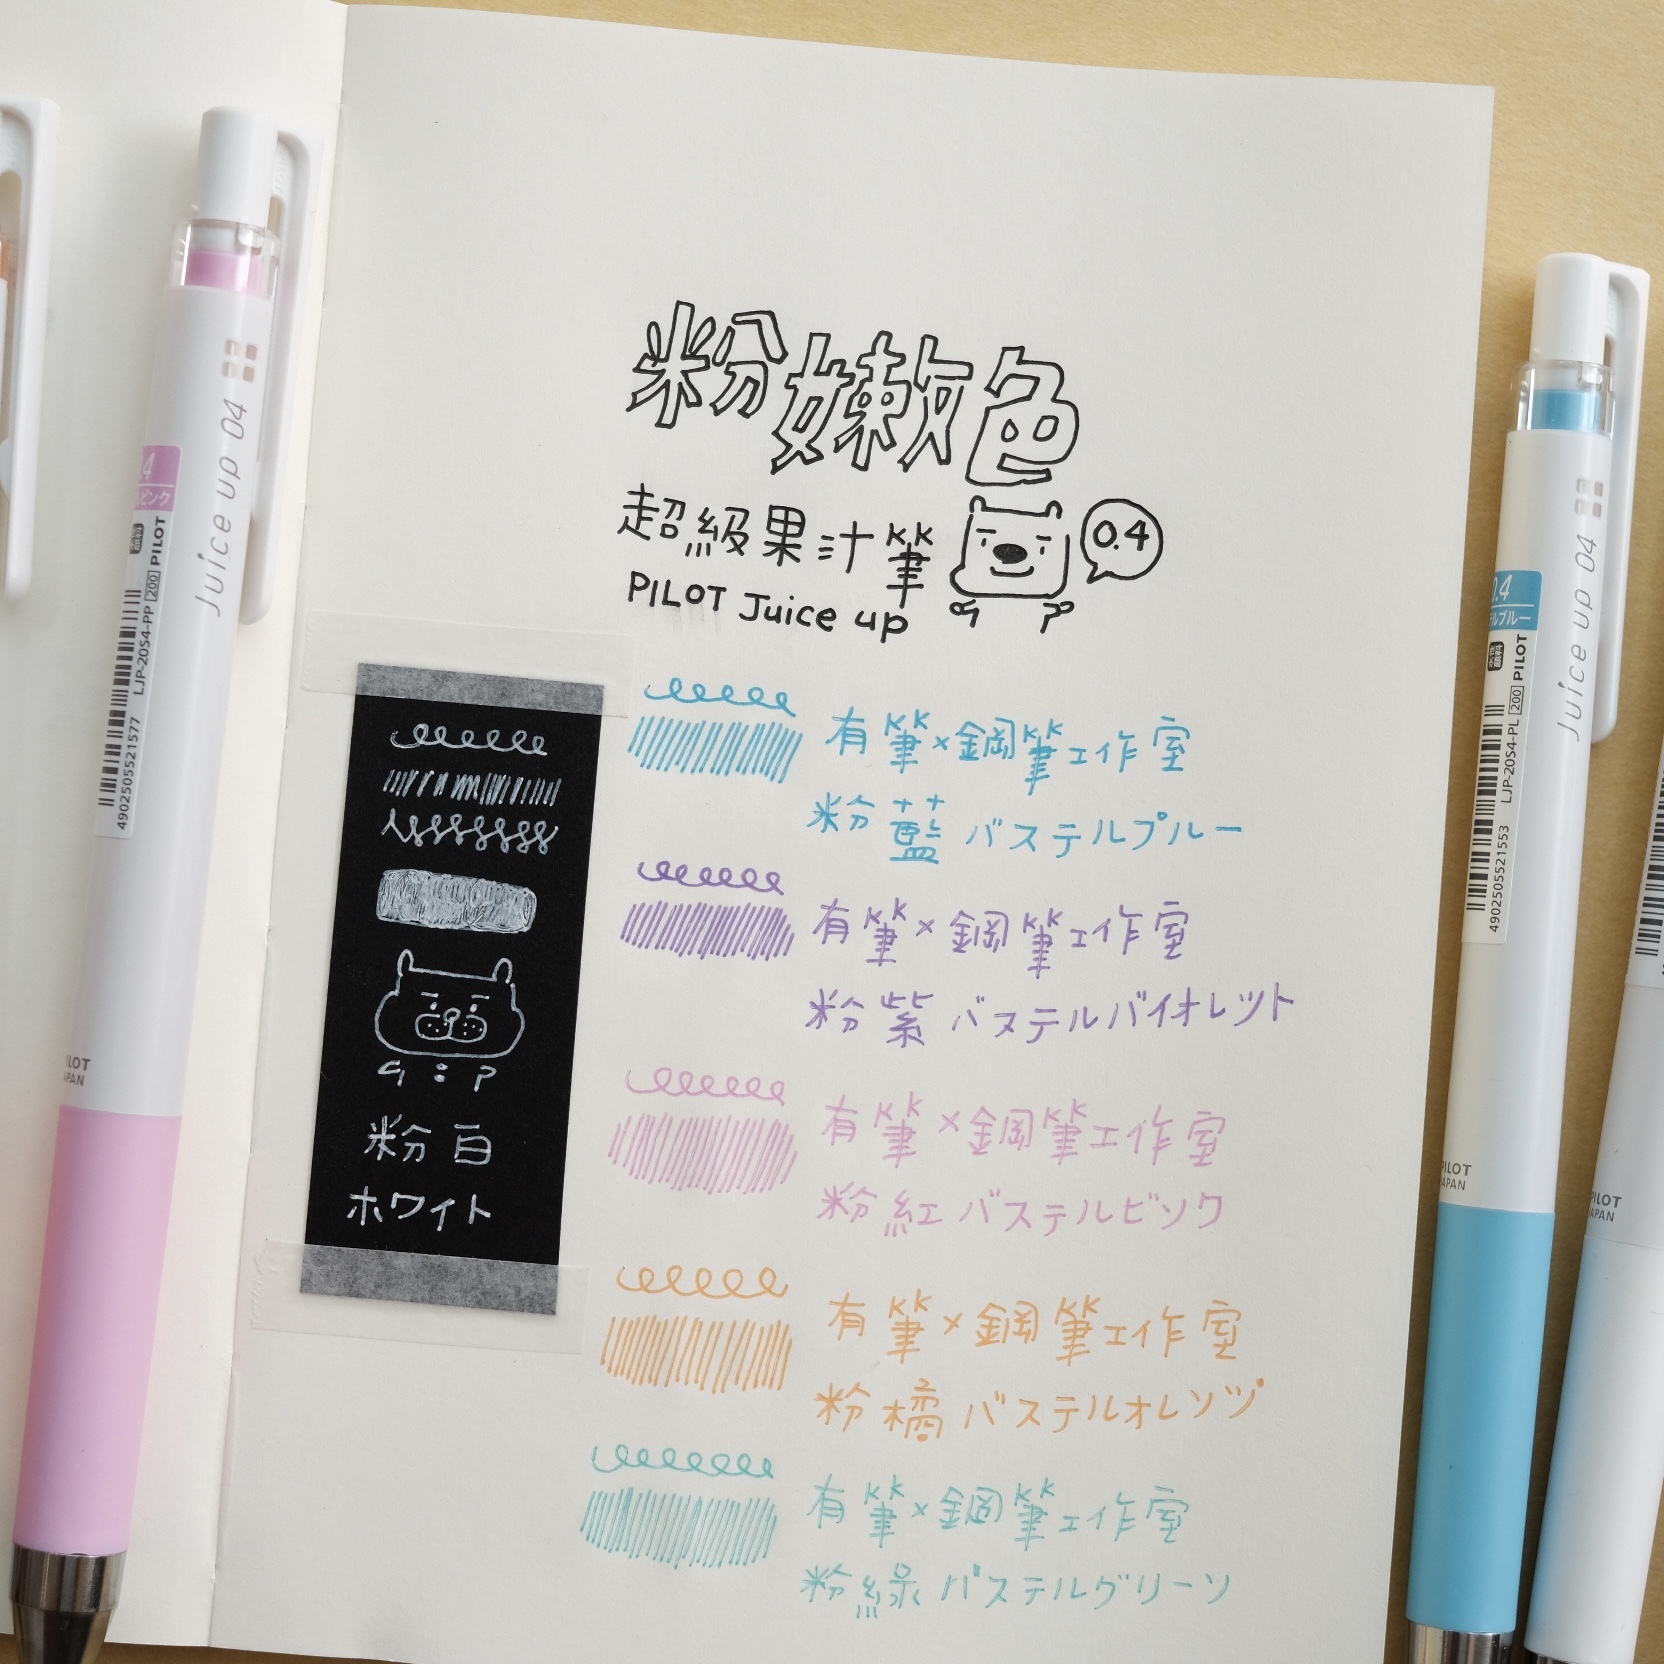 粉嫩色
超級果汁筆
0.4
PILOT Juice up
有筆×鋼筆工作室
粉藍 パステルブルー
有筆×鋼筆工作室
粉紫 パステルバイオレット
有筆×鋼筆工作室
粉紅 パステルピンク
有筆×鋼筆工作室
粉橘 パステルオレンジ
有筆×鋼筆工作室
粉綠 パステルグリーン
粉白
ホワイト
Juice up 04
.4
ピンク
PILOT
200
LJP-20S4-PP
4902505521577
Juice up 04
0.4
ルブルー
水性
顔料
PILOT
200
LJP-20S4-PL
4902505521553
PILOT
JAPAN